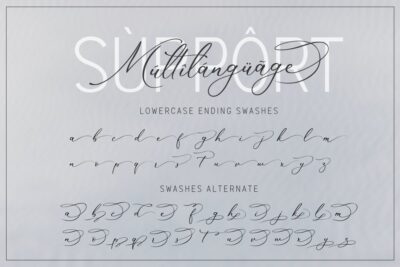 SÙPPÔRT
Múltìlángüãge
LOWERCASE ENDING SWASHES
a b c d e f g h i j k l m
n o p q r s t u v w x y z
SWASHES ALTERNATE